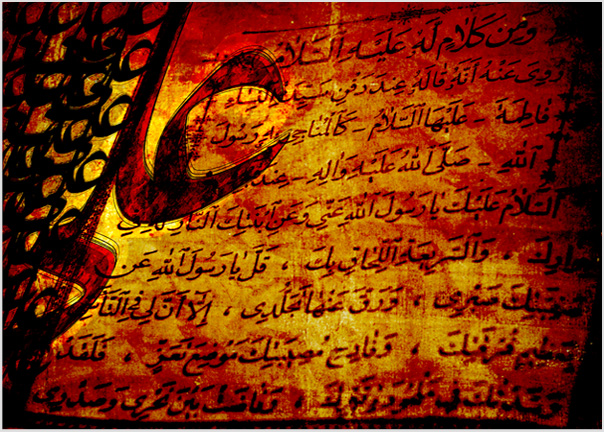 وَمِنْ كَلَامٍ لَهُ عَلَيْهِ السَّلَامُ
رُوِيَ عَنْهُ أَنَّهُ قَالَهُ عِنْدَ دَفْنِ سَيِّدَةِ النِّسَاءِ
فَاطِمَةَ - عَلَيْهَا السَّلَامُ - كَالْمُنَاجِي بِهِ رَسُولَ
اللهِ - صَلَّى اللهُ عَلَيْهِ وَآلِهِ - عِنْدَ
السَّلَامُ عَلَيْكَ يَا رَسُولَ اللهِ عَنِّي وَعَنِ ابْنَتِكَ النَّازِلَةِ فِي
جِوَارِكَ ، وَالسَّرِيعَةِ اللَّحَاقِ بِكَ ، قَلَّ يَا رَسُولَ اللهِ عَنْ
صَفِيَّتِكَ صَبْرِي ، وَرَقَّ عَنْهَا تَجَلُّدِي ، إِلَّا أَنَّ لِي فِي التَّأَسِّي
بِعَظِيمِ فُرْقَتِكَ ، وَفَادِحِ مُصِيبَتِكَ مَوْضِعَ تَعَزٍّ ، فَلَقَدْ
وَسَّدْتُكَ فِي مَلْحُودَةِ قَبْرِكَ ، وَفَاضَتْ بَيْنَ نَحْرِي وَصَدْرِي